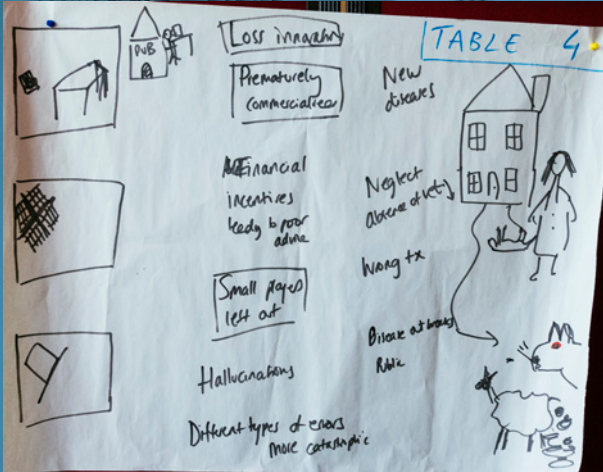 TABLE 4
PUB
Loss
Prematurely
commercialised
New
diseases
Financial
incentives
leady to poor
advice
Neglect
absence of vet
Wrong tx
Small players
left out
Disease outbreaks
Public
Hallucinations
Different types of errors
more catastrophic